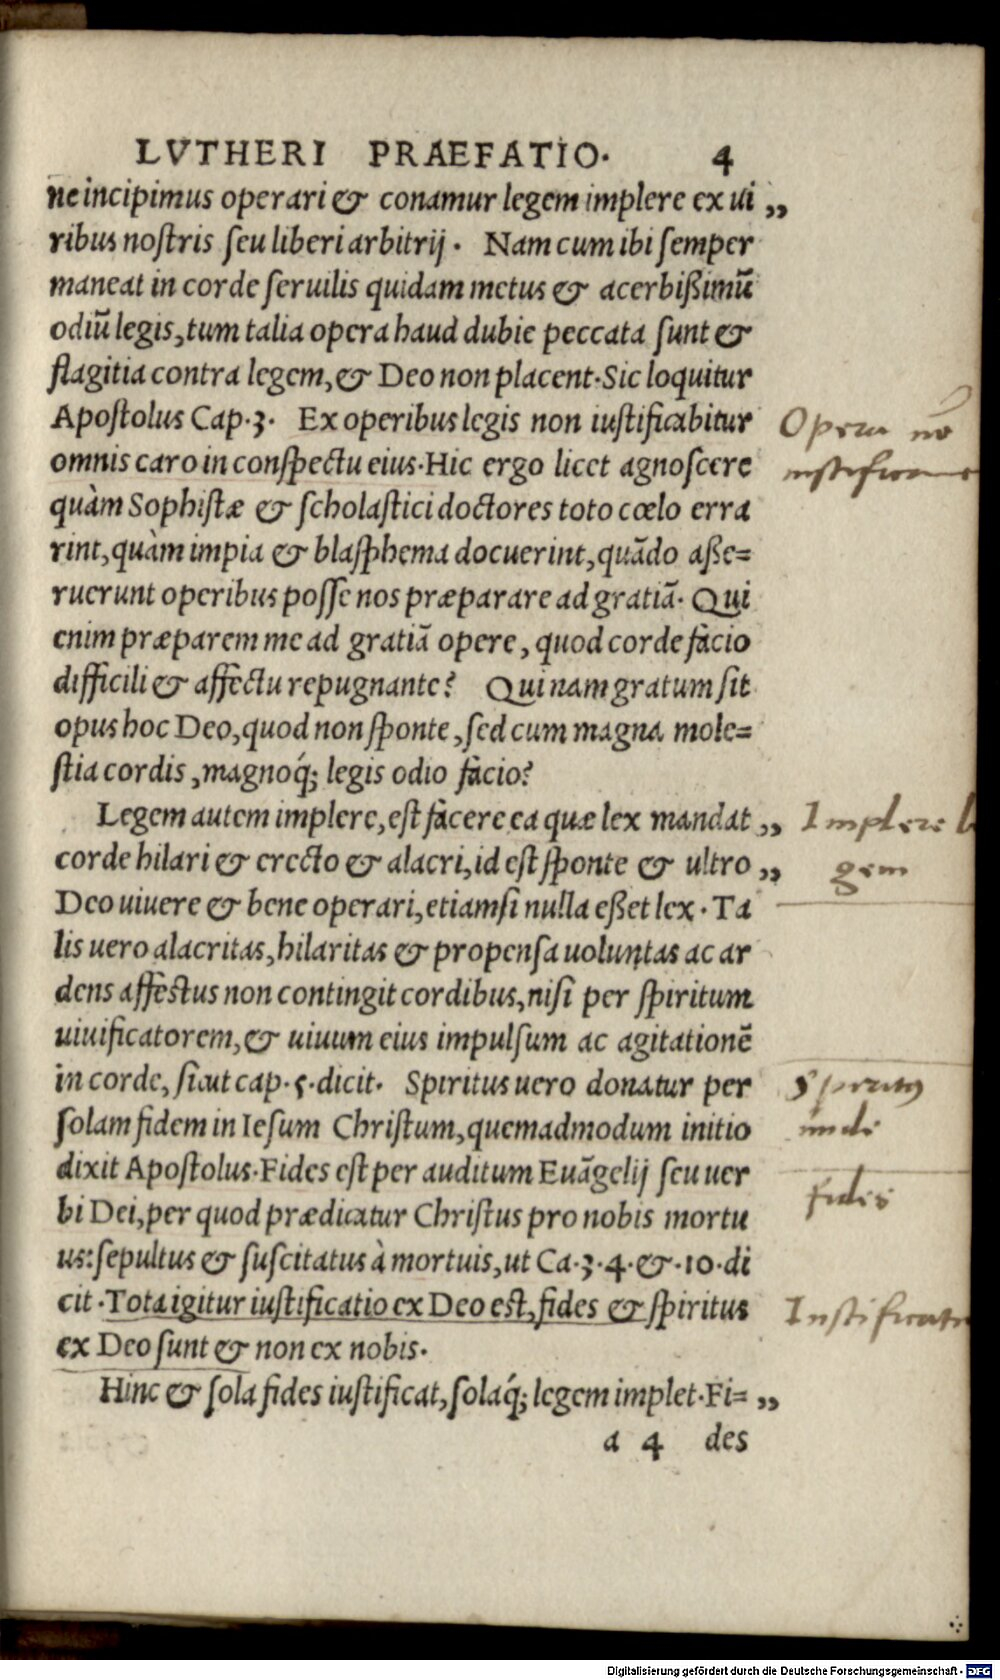 LVTHERI PRAEFATIO. 4
ne incipimus operari & conamur legem implere ex ui „
ribus nostris seu liberi arbitrij. Nam cum ibi semper
maneat in corde seruilis quidam metus & acerbißimū
odiū legis, tum talia opera haud dubie peccata sunt &
flagitia contra legem, & Deo non placent. Sic loquitur
Apostolus Cap. 3. Ex operibus legis non iustificabitur
Opera nō
omnis caro in conspectu eius. Hic ergo licet agnoscere
quàm Sophistæ & scholastici doctores toto cœlo erra
rint, quàm impia & blasphema docuerint, quādo aße=
ruerunt operibus posse nos præparare ad gratiā. Qui
enim præparem me ad gratiā opere, quod corde facio
difficili & affectu repugnante? Qui nam gratum sit
opus hoc Deo, quod non sponte, sed cum magna mole=
stia cordis, magnoq́; legis odio facio?
Legem autem implere, est facere ea quæ lex mandat „
Implere le
gem
corde hilari & erecto & alacri, id est sponte & ultro „
Deo uiuere & bene operari, etiamsi nulla eßet lex. Ta
lis uero alacritas, hilaritas & propensa uoluntas ac ar
dens affectus non contingit cordibus, nisi per spiritum
uiuificatorem, & uiuum eius impulsum ac agitationē
in corde, sicut cap. 5. dicit. Spiritus uero donatur per
Spiritus
unde
solam fidem in Iesum Christum, quemadmodum initio
dixit Apostolus. Fides est per auditum Euāgelij seu uer
fides
bi Dei, per quod prædicatur Christus pro nobis mortu
us: sepultus & suscitatus à mortuis, ut Ca. 3. 4. &. 10. di
cit. Tota igitur iustificatio ex Deo est, fides & spiritus
Iustificatio
ex Deo sunt & non ex nobis.
Hinc & sola fides iustificat, solaq́; legem implet. Fi= „
a 4 des
Digitalisierung gefördert durch die Deutsche Forschungsgemeinschaft - DFG